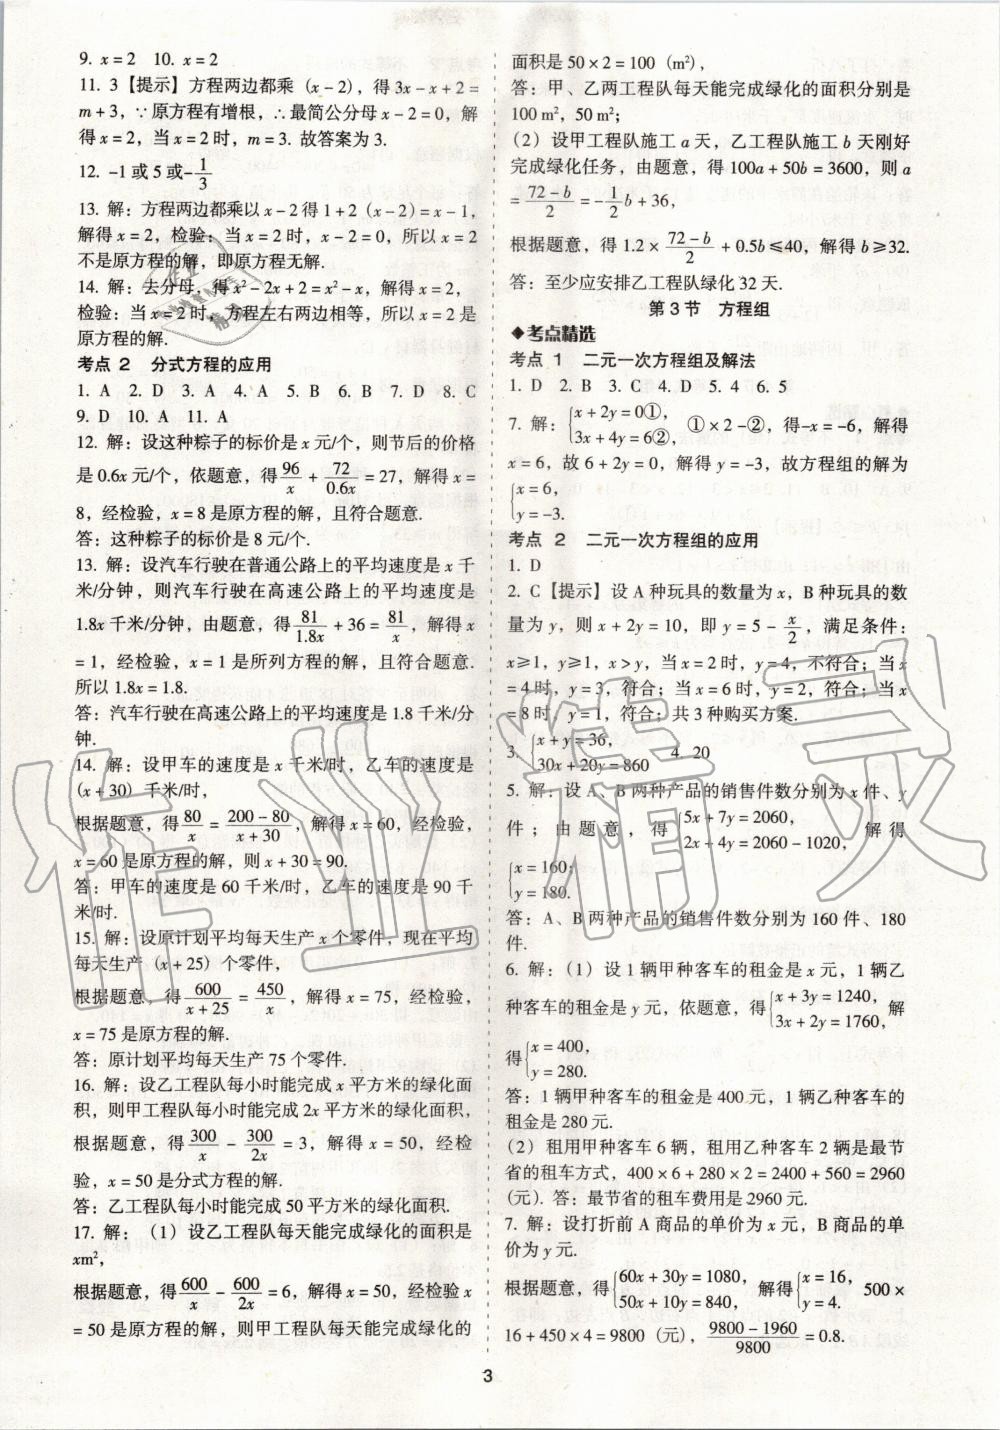 9. x=2  10. x=2
11. 3【提示】方程两边都乘(x-2)，得3x-x+2=
m+3，∵原方程有增根，∴最简公分母x-2=0，解
得x=2，当x=2时，m=3. 故答案为3.
12. -1或5或-1/3
13. 解：方程两边都乘以x-2得1+2(x-2)=x-1，
解得x=2，检验：当x=2时，x-2=0，所以x=2
不是原方程的解，即原方程无解.
14. 解：去分母，得x²-2x+2=x²-x，解得x=2，
检验：当x=2时，方程左右两边相等，所以x=2是
原方程的解.
考点 2  分式方程的应用
1. A  2. D  3. A  4. A  5. B  6. B  7. D  8. C
9. D  10. A  11. A
12. 解：设这种粽子的标价是x元/个，则节后的价格
是0.6x元/个，依题意，得96/x+72/0.6x=27，解得x=
8，经检验，x=8是原方程的解，且符合题意.
答：这种粽子的标价是8元/个.
13. 解：设汽车行驶在普通公路上的平均速度是x千
米/分钟，则汽车行驶在高速公路上的平均速度是
1.8x千米/分钟，由题意，得81/1.8x+36=81/x，解得x
=1，经检验，x=1是所列方程的解，且符合题意.
所以1.8x=1.8.
答：汽车行驶在高速公路上的平均速度是1.8千米/分
钟.
14. 解：设甲车的速度是x千米/时，乙车的速度是
(x+30)千米/时，
根据题意，得80/x=(200-80)/(x+30)，解得x=60，经检验，
x=60是原方程的解，则x+30=90.
答：甲车的速度是60千米/时，乙车的速度是90千
米/时.
15. 解：设原计划平均每天生产x个零件，现在平均
每天生产(x+25)个零件，
根据题意，得600/(x+25)=450/x，解得x=75，经检验，
x=75是原方程的解.
答：原计划平均每天生产75个零件.
16. 解：设乙工程队每小时能完成x平方米的绿化面
积，则甲工程队每小时能完成2x平方米的绿化面积，
根据题意，得300/x-300/2x=3，解得x=50，经检
验，x=50是分式方程的解.
答：乙工程队每小时能完成50平方米的绿化面积.
17. 解：(1)设乙工程队每天能完成绿化的面积是
xm²，
根据题意，得600/x-600/2x=6，解得x=50，经检验x
=50是原方程的解，则甲工程队每天能完成绿化的
面积是50×2=100(m²)，
答：甲、乙两工程队每天能完成绿化的面积分别是
100 m²，50 m²；
(2)设甲工程队施工a天，乙工程队施工b天刚好
完成绿化任务，由题意，得100a+50b=3600，则a
=(72-b)/2=-1/2b+36，
根据题意，得1.2×(72-b)/2+0.5b≤40，解得b≥32.
答：至少应安排乙工程队绿化32天.
第3节  方程组
◆考点精选
考点 1  二元一次方程组及解法
1. D  2. B  3. C  4. D  5. 4  6. 5
7. 解：{x+2y=0①，3x+4y=6②，  ①×2-②，得-x=-6，解得
x=6，故6+2y=0，解得y=-3，故方程组的解为
{x=6，
y=-3.
考点 2  二元一次方程组的应用
1. D
2. C【提示】设A种玩具的数量为x，B种玩具的数
量为y，则x+2y=10，即y=5-x/2，满足条件：
x≥1，y≥1，x>y，当x=2时，y=4，不符合；当x
=4时，y=3，符合；当x=6时，y=2，符合；当x
=8时，y=1，符合；共3种购买方案.
3. {x+y=36，30x+20y=860  4. 20
5. 解：设A、B两种产品的销售件数分别为x件、y
件；由题意，得{5x+7y=2060，2x+4y=2060-1020，解得
{x=160；
y=180.
答：A、B两种产品的销售件数分别为160件、180
件.
6. 解：(1)设1辆甲种客车的租金是x元，1辆乙
种客车的租金是y元，依题意，得{x+3y=1240，3x+2y=1760，解
得{x=400，y=280.
答：1辆甲种客车的租金是400元，1辆乙种客车的
租金是280元.
(2)租用甲种客车6辆，租用乙种客车2辆是最节
省的租车方式，400×6+280×2=2400+560=2960
(元). 答：最节省的租车费用是2960元.
7. 解：设打折前A商品的单价为x元，B商品的单
价为y元.
根据题意，得{60x+30y=1080，50x+10y=840，解得{x=16，y=4.  500×
16+450×4=9800(元)，(9800-1960)/9800=0.8.
3
作业精灵